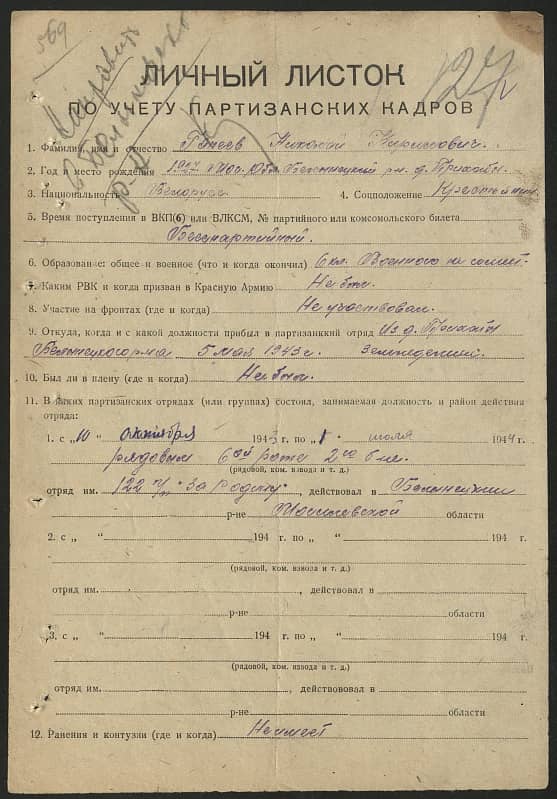 569
127
ЛИЧНЫЙ ЛИСТОК
ПО УЧЕТУ ПАРТИЗАНСКИХ КАДРОВ
1. Фамилия, имя и отчество Николай
2. Год и место рождения 1927 Белыничский д.
3. Национальность Белорус 4. Соцположение Крестьянин
5. Время поступления в ВКП(б) или ВЛКСМ, № партийного или комсомольского билета
Беспартийный.
6. Образование: общее и военное (что и когда окончил) 6 кл. Военного не
7. Каким РВК и когда призван в Красную Армию Не был.
8. Участие на фронтах (где и когда) Не участвовал.
9. Откуда, когда и с какой должности прибыл в партизанский отряд Из д.
5 мая 1943 г.
10. Был ли в плену (где и когда) Не был.
11. В каких партизанских отрядах (или группах) состоял, занимаемая должность и район действия
отряда:
1. с „10 октября 1943 г. по „1 июля 1944 г.
рядовым 6ой роте 2го б-на.
(рядовой, ком. взвода и т. д.)
отряд им. 122 п/п "За Родину", действовал в
р-не Могилевской области
2. с „ “ 194 г. по „ “ 194 г.
(рядовой, ком. взвода и т. д.)
отряд им. , действовал в
р-не области
3. с „ “ 194 г. по „ “ 194 г.
(рядовой, ком. взвода и т. д.)
отряд им. , действовал в
р-не области
12. Ранения и контузии (где и когда) Не имеет